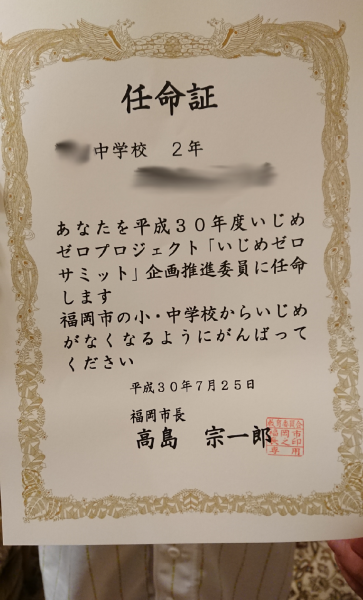 任命証
中学校 2年
あなたを平成30年度いじめ
ゼロプロジェクト「いじめゼロ
サミット」企画推進委員に任命
します
福岡市の小・中学校からいじめ
がなくなるようにがんばって
ください
平成30年7月25日
福岡市長
高島 宗一郎